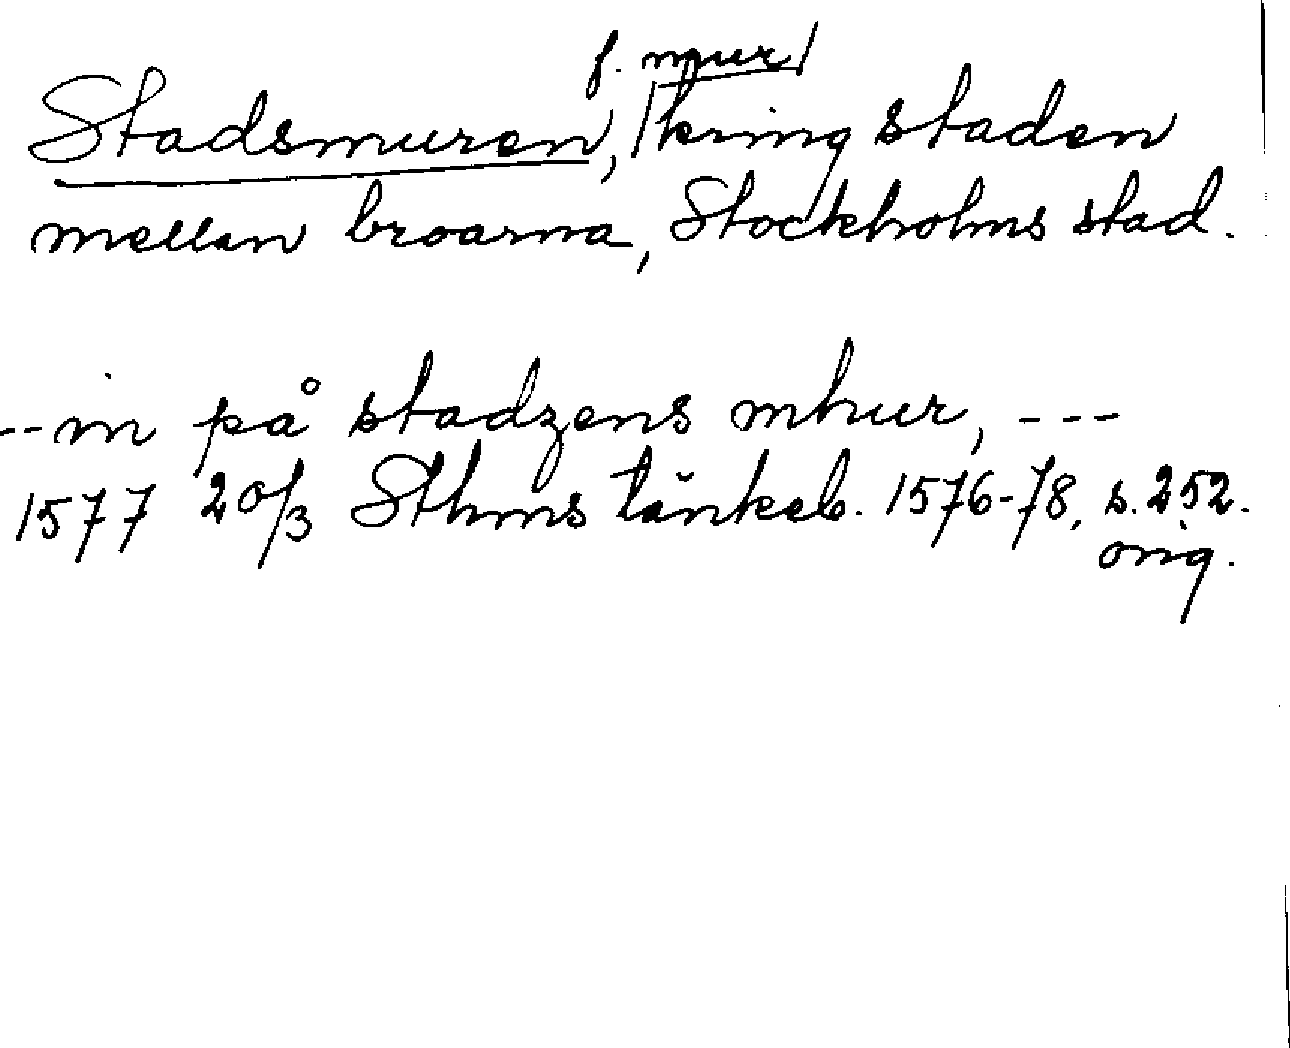 f. mur
Stadsmuren, kring staden
mellan broarna, Stockholms stad.
--in på stadzens mhur, ---
1577 20/3 Sthms tänkeb. 1576-78, s. 252.
orig.